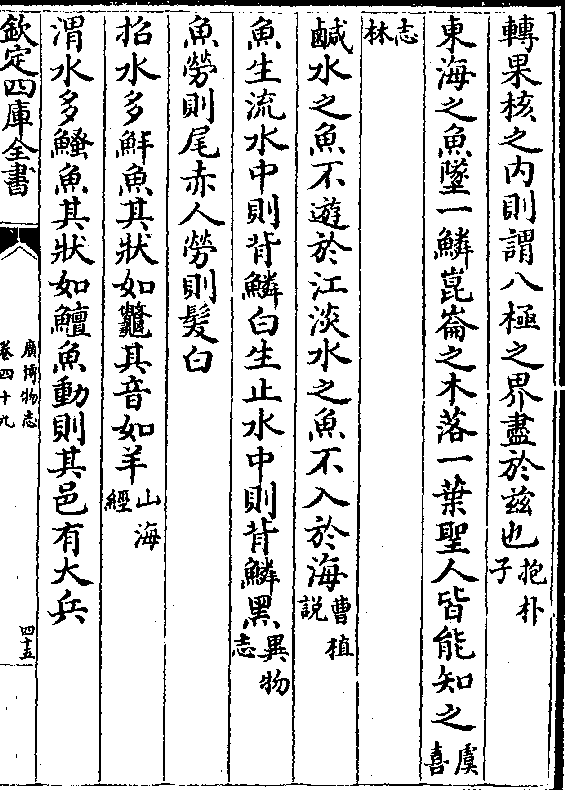 轉果核之内則謂八極之界盡於兹也抱朴子
東海之魚墜一鱗崑崙之木落一葉聖人皆能知之虞喜
志林
鹹水之魚不遊於江淡水之魚不入於海曹植説
魚生流水中則背鱗白生止水中則背鱗黑異物志
魚勞則尾赤人勞則髮白
招水多鮮魚其狀如鼈其音如羊山海經
渭水多鰠魚其狀如鱣魚動則其邑有大兵
欽定四庫全書
廣博物志
卷四十九
四十五